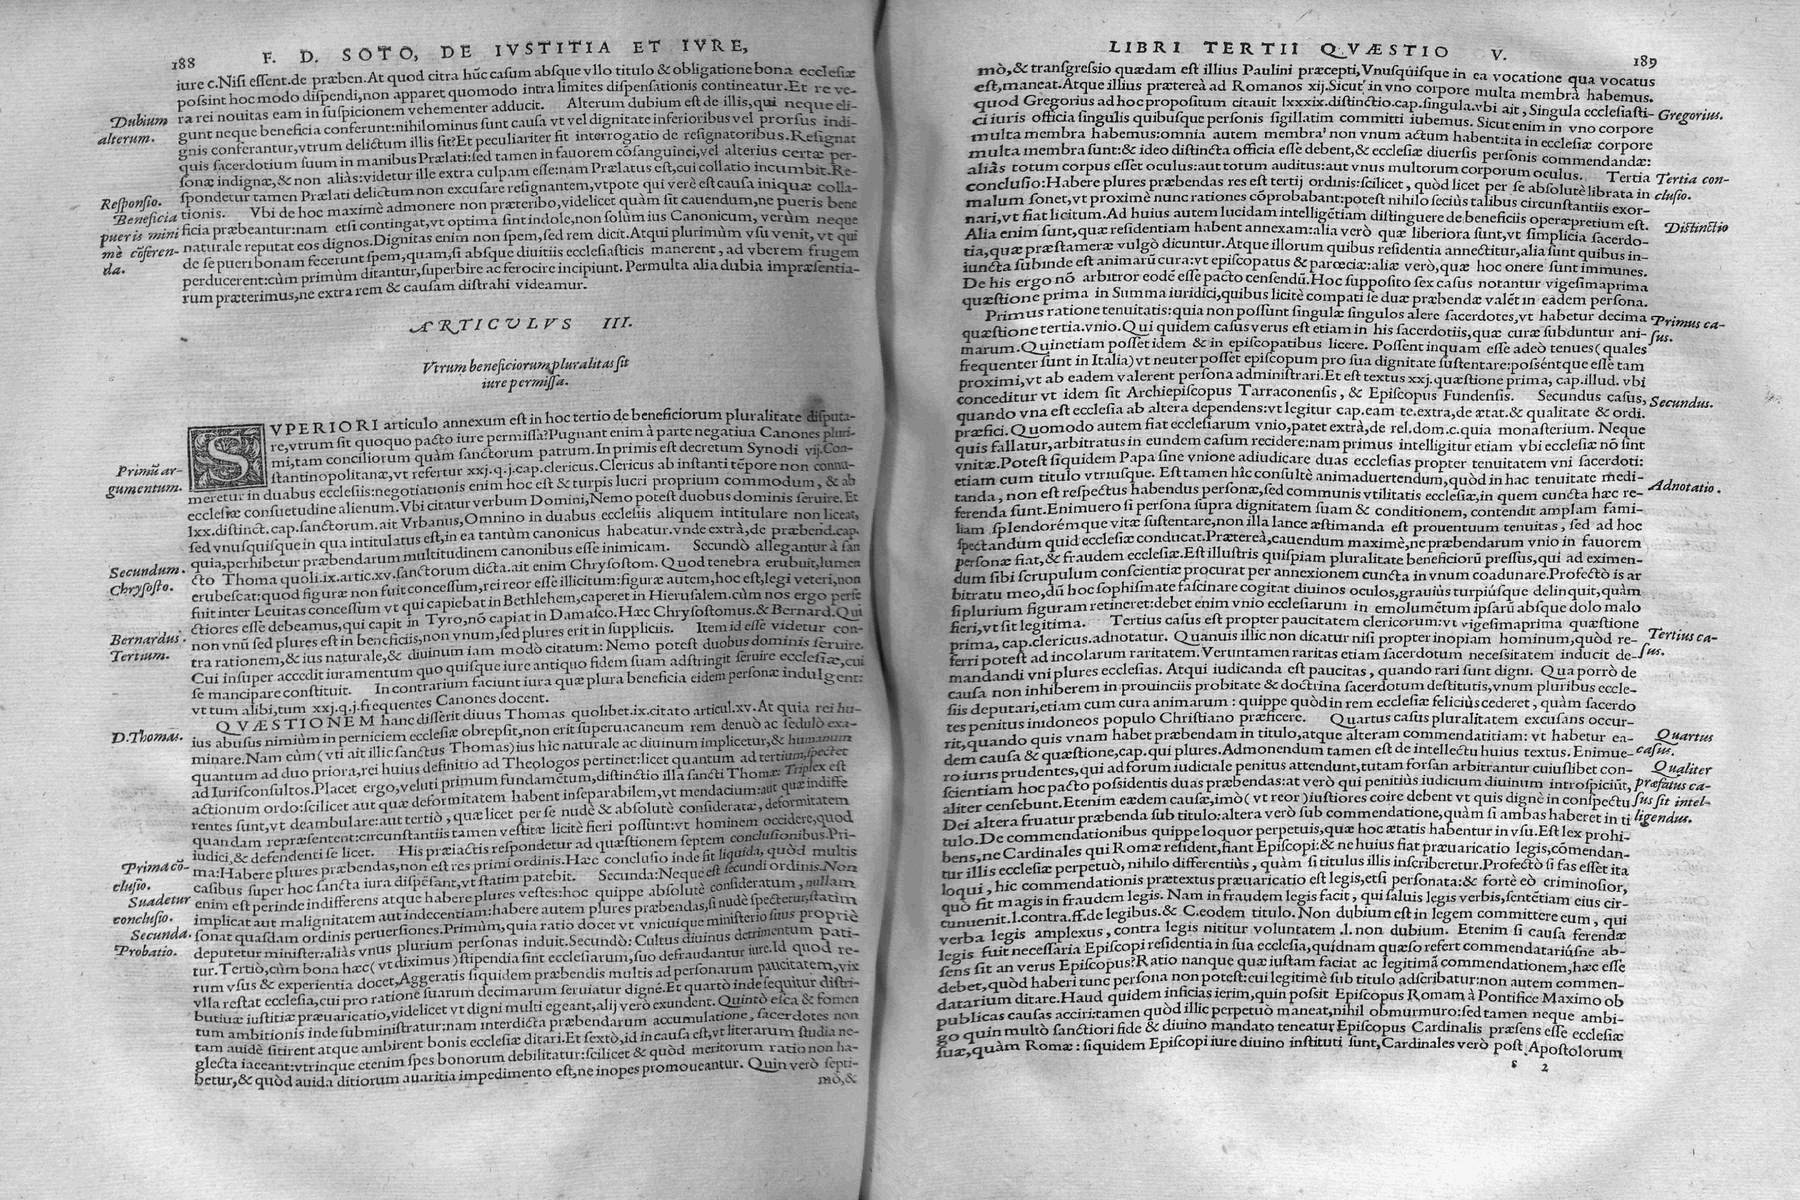 188 F. D. SOTO, DE IVSTITIA ET IVRE,
iure c. Nisi essent. de præben. At quod citra hũc casum absque vllo titulo & obligatione bona ecclesiæ
possint hoc modo dispendi, non apparet quomodo intra limites dispensationis contineatur. Et re ve-
ra rei nouitas eam in suspicionem vehementer adducit. Alterum dubium est de illis, qui neque eli-
Dubium alterum.
gunt neque beneficia conferunt: nihilominus sunt causa vt vel dignitate inferioribus vel prorsus indi-
gnis conferantur, vtrum delictum illis sit? Et peculiariter fit interrogatio de resignatoribus. Resignat
quis sacerdotium suum in manibus Prælati: sed tamen in fauorem cõsanguinei, vel alterius certæ per-
sonæ indignæ, & non aliàs: videtur ille extra culpam esse: nam Prælatus est, cui collatio incumbit. Re-
Responsio.
spondetur tamen Prælati delictum non excusare resignantem, vtpote qui verè est causa iniquæ colla-
tionis. Vbi de hoc maximè admonere non præteribo, videlicet quàm sit cauendum, ne pueris bene
Beneficia pueris minimè cõferenda.
ficia præbeantur: nam etsi contingat, vt optima sint indole, non solùm ius Canonicum, verùm neque
naturale reputat eos dignos. Dignitas enim non spem, sed rem dicit. Atqui plurimùm vsu venit, vt qui
de se pueri bonam fecerunt spem, quam, si absque diuitiis ecclesiasticis manerent, ad vberem frugem
perducerent: cùm primùm ditantur, superbire ac ferocire incipiunt. Permulta alia dubia impræsentia-
rum præterimus, ne extra rem & causam distrahi videamur.
ARTICVLVS III.
Vtrum beneficiorum pluralitas sit
iure permissa.
SVPERIORI articulo annexum est in hoc tertio de beneficiorum pluralitate disputa-
re, vtrum sit quoquo pacto iure permissa? Pugnant enim à parte negatiua Canones pluri-
mi, tam conciliorum quàm sanctorum patrum. In primis est decretum Synodi vij. Con-
Primũ argumentum.
stantinopolitanæ, vt refertur xxj. q. j. cap. clericus. Clericus ab instanti tẽpore non connu-
meretur in duabus ecclesiis: negotiationis enim hoc est & turpis lucri proprium commodum, & ab
ecclesiæ consuetudine alienum. Vbi citatur verbum Domini, Nemo potest duobus dominis seruire. Et
lxx. distinct. cap. sanctorum. ait Vrbanus, Omnino in duabus ecclesiis aliquem intitulare non liceat,
sed vnusquisque in qua intitulatus est, in ea tantùm canonicus habeatur. vnde extrà, de præbend. cap.
quia, perhibetur præbendarum multitudinem canonibus esse inimicam. Secundò allegantur à san
Secundum. Chrysosto.
cto Thoma quoli. ix. artic. xv. sanctorum dicta. ait enim Chrysostom. Quod tenebra erubuit, lumen
erubescat: quod figuræ non fuit concessum, rei reor esse illicitum: figuræ autem, hoc est, legi veteri, non
fuit inter Leuitas concessum vt qui capiebat in Bethlehem, caperet in Hierusalem. cùm nos ergo perfe
ctiores esse debeamus, qui capit in Tyro, nõ capiat in Damasco. Hæc Chrysostomus. & Bernard. Qui
Bernardus. Tertium.
non vnũ sed plures est in beneficiis, non vnum, sed plures erit in suppliciis. Item id esse videtur con-
tra rationem, & ius naturale, & diuinum iam modò citatum: Nemo potest duobus dominis seruire.
Cui insuper accedit iuramentum quo quisque iure antiquo fidem suam adstringit seruire ecclesiæ, cui
se mancipare constituit. In contrarium faciunt iura quæ plura beneficia eidem personæ indulgent:
vt tum alibi, tum xxj. q. j. frequentes Canones docent.
D. Thomas.
QVÆSTIONEM hanc disserit diuus Thomas quolibet. ix. citato articul. xv. At quia rei hu-
ius abusus nimiùm in perniciem ecclesiæ obrepsit, non erit superuacaneum rem denuò ac sedulò exa-
minare. Nam cùm (vti ait illic sanctus Thomas) ius hîc naturale ac diuinum implicetur, & humanum
quantum ad duo priora, rei huius definitio ad Theologos pertinet: licet quantum ad tertium, spectet
ad Iurisconsultos. Placet ergo, veluti primum fundamẽtum, distinctio illa sancti Thomæ: Triplex est
actionum ordo: scilicet aut quæ deformitatem habent inseparabilem, vt mendacium: aut quæ indiffe
rentes sunt, vt deambulare: aut tertiò, quæ licet per se nudè & absolutè consideratæ, deformitatem
quandam repræsentent: circunstantiis tamen vestitæ licitè fieri possunt: vt hominem occidere, quod
iudici, & defendenti se licet. His præiactis respondetur ad quæstionem septem conclusionibus. Pri-
Prima cõclusio. Suadetur conclusio.
ma: Habere plures præbendas, non est res primi ordinis. Hæc conclusio inde sit liquida, quòd multis
casibus super hoc sancta iura dispẽsant, vt statim patebit. Secunda: Neque est secundi ordinis. Non
Secunda. Probatio.
enim est perinde indifferens atque habere plures vestes: hoc quippe absolutè consideratum, nullam
implicat aut malignitatem aut indecentiam: habere autem plures præbendas, si nudè spectetur, statim
sonat quasdam ordinis peruersiones. Primùm, quia ratio docet vt vnicuique ministerio suus propriè
deputetur minister: aliàs vnus plurium personas induit. Secundò: Cultus diuinus detrimentum pati-
tur. Tertiò, cùm bona hæc (vt diximus) stipendia sint ecclesiarum, suo defraudantur iure. Id quod re-
rum vsus & experientia docet, Aggeratis siquidem præbendis multis ad personarum paucitatem, vix
vlla restat ecclesia, cui pro ratione suarum decimarum seruiatur digné. Et quartò inde sequitur distri-
butiuæ iustitiæ præuaricatio, videlicet vt digni multi egeant, alij verò exundent. Quintò esca & fomen
tum ambitionis inde subministratur: nam interdicta præbendarum accumulatione, sacerdotes non
tam auidè sitirent atque ambirent bonis ecclesiæ ditari. Et sextò, id in causa est, vt literarum studia ne-
glecta iaceant: vtrinque etenim spes bonorum debilitatur: scilicet & quòd meritorum ratio non ha-
betur, & quòd auida ditiorum auaritia impedimento est, ne inopes promoueantur. Quin verò septi-
mò, &
LIBRI TERTII QVÆSTIO V. 189
mò, & transgressio quædam est illius Paulini præcepti, Vnusquisque in ea vocatione qua vocatus
est, maneat. Atque illius prætereà ad Romanos xij. Sicut in vno corpore multa membra habemus.
quod Gregorius ad hoc propositum citauit lxxxix. distinctio. cap. singula. vbi ait, Singula ecclesiasti-
Gregorius.
ci iuris officia singulis quibusque personis sigillatim committi iubemus. Sicut enim in vno corpore
multa membra habemus: omnia autem membra non vnum actum habent: ita in ecclesiæ corpore
multa membra sunt: & ideo distincta officia esse debent, & ecclesiæ diuersis personis commendandæ:
aliàs totum corpus esset oculus: aut totum auditus: aut vnus multorum corporum oculus. Tertia
Tertia conclusio.
conclusio: Habere plures præbendas res est tertij ordinis: scilicet, quòd licet per se absolutè librata in
malum sonet, vt proximè nunc rationes cõprobabant: potest nihilo seciùs talibus circunstantiis exor-
nari, vt fiat licitum. Ad huius autem lucidam intelligẽtiam distinguere de beneficiis operæpretium est.
Distinctio
Alia enim sunt, quæ residentiam habent annexam: alia verò quæ liberiora sunt, vt simplicia sacerdo-
tia, quæ præstameræ vulgò dicuntur. Atque illorum quibus residentia annectitur, alia sunt quibus in-
iuncta subinde est animarũ cura: vt episcopatus & parœciæ: aliæ verò, quæ hoc onere sunt immunes.
De his ergo nõ arbitror eodẽ esse pacto censendũ. Hoc supposito sex casus notantur vigesimaprima
quæstione prima in Summa iuridici, quibus licitè compati se duæ præbendæ valẽt in eadem persona.
Primus ratione tenuitatis: quia non possunt singulæ singulos alere sacerdotes, vt habetur decima
Primus casus.
quæstione tertia. vnio. Qui quidem casus verus est etiam in his sacerdotiis, quæ curæ subduntur ani-
marum. Quinetiam posset idem & in episcopatibus licere. Possent inquam esse adeò tenues (quales
frequenter sunt in Italia) vt neuter posset episcopum pro sua dignitate sustentare: posséntque esse tam
proximi, vt ab eadem valerent persona administrari. Et est textus xxj. quæstione prima, cap. illud. vbi
conceditur vt idem sit Archiepiscopus Tarraconensis, & Episcopus Fundensis. Secundus casus,
Secundus.
quando vna est ecclesia ab altera dependens: vt legitur cap. eam te. extra, de ætat. & qualitate & ordi.
præfici. Quomodo autem fiat ecclesiarum vnio, patet extrà, de rel. dom. c. quia monasterium. Neque
quis fallatur, arbitratus in eundem casum recidere: nam primus intelligitur etiam vbi ecclesiæ nõ sint
vnitæ. Potest siquidem Papa sine vnione adiudicare duas ecclesias propter tenuitatem vni sacerdoti:
etiam cum titulo vtriusque. Est tamen hîc consultè animaduertendum, quòd in hac tenuitate medi-
Adnotatio.
tanda, non est respectus habendus personæ, sed communis vtilitatis ecclesiæ, in quem cuncta hæc re-
ferenda sunt. Enimuero si persona supra dignitatem suam & conditionem, contendit amplam fami-
liam splendorémque vitæ sustentare, non illa lance æstimanda est prouentuum tenuitas, sed ad hoc
spectandum quid ecclesiæ conducat. Prætereà, cauendum maximè, ne præbendarum vnio in fauorem
personæ fiat, & fraudem ecclesiæ. Est illustris quispiam pluralitate beneficiorũ pressus, qui ad eximen-
dum sibi scrupulum conscientiæ procurat per annexionem cuncta in vnum coadunare. Profectò is ar
bitratu meo, dũ hoc sophismate fascinare cogitat diuinos oculos, grauius turpiúsque delinquit, quàm
si plurium figuram retineret: debet enim vnio ecclesiarum in emolumẽtum ipsarũ absque dolo malo
fieri, vt sit legitima. Tertius casus est propter paucitatem clericorum: vt vigesimaprima quæstione
Tertius casus.
prima, cap. clericus. adnotatur. Quanuis illic non dicatur nisi propter inopiam hominum, quòd re-
ferri potest ad incolarum raritatem. Veruntamen raritas etiam sacerdotum necessitatem inducit de-
mandandi vni plures ecclesias. Atqui iudicanda est paucitas, quando rari sunt digni. Qua porrò de
causa non inhiberem in prouinciis probitate & doctrina sacerdotum destitutis, vnum pluribus eccle-
siis deputari, etiam cum cura animarum: quippe quòd in rem ecclesiæ feliciùs cederet, quàm sacerdo
tes penitus inidoneos populo Christiano præficere. Quartus casus pluralitatem excusans occur-
Quartus casus.
rit, quando quis vnam habet præbendam in titulo, atque alteram commendatitiam: vt habetur ea-
dem causa & quæstione, cap. qui plures. Admonendum tamen est de intellectu huius textus. Enimue-
Qualiter præfatus casus sit intelligendus.
ro iuris prudentes, qui ad forum iudiciale penitus attendunt, tutam forsan arbitrantur cuiuslibet con-
scientiam hoc pacto possidentis duas præbendas: at verò qui penitiùs iudicium diuinum introspiciũt,
aliter censebunt. Etenim eædem causæ, imò (vt reor) iustiores coire debent vt quis dignè in conspectu
Dei altera fruatur præbenda sub titulo: altera verò sub commendatione, quàm si ambas haberet in ti
tulo. De commendationibus quippe loquor perpetuis, quæ hoc ætatis habentur in vsu. Est lex prohi-
bens, ne Cardinales qui Romæ resident, fiant Episcopi: & ne huius fiat præuaricatio legis, cõmendan-
tur illis ecclesiæ perpetuò, nihilo differentiùs, quàm si titulus illis inscriberetur. Profectò si fas esset ita
loqui, hic commendationis prætextus præuaricatio est legis, etsi personata: & fortè eò criminosior,
quò fit magis in fraudem legis. Nam in fraudem legis facit, qui saluis legis verbis, sentẽtiam eius cir-
cunuenit. l. contra. ff. de legibus. & C. eodem titulo. Non dubium est in legem committere eum, qui
verba legis amplexus, contra legis nititur voluntatem. l. non dubium. Etenim si causa ferendæ
legis fuit necessaria Episcopi residentia in sua ecclesia, quidnam quæso refert commendatariúsne ab-
sens sit an verus Episcopus? Ratio nanque quæ iustam faciat ac legitimã commendationem, hæc esse
debet, quòd haberi tunc persona non potest: cui legitimè sub titulo adscribatur: non autem commen-
datarium ditare. Haud quidem inficias ierim, quin possit Episcopus Romam à Pontifice Maximo ob
publicas causas acciri: tamen quòd illic perpetuò maneat, nihil obmurmuro: sed tamen neque ambi-
go quin multò sanctiori fide & diuino mandato teneatur Episcopus Cardinalis præsens esse ecclesiæ
suæ, quàm Romæ: siquidem Episcopi iure diuino instituti sunt, Cardinales verò post Apostolorum
s 2